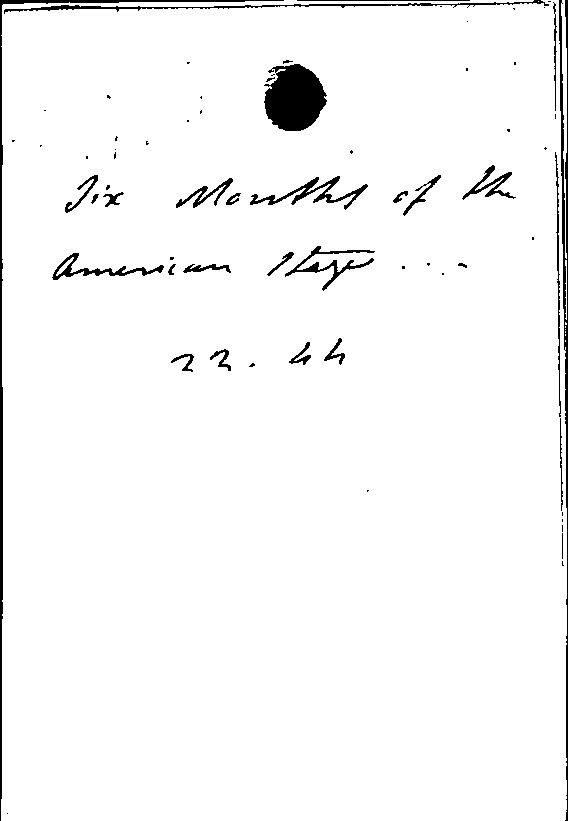 Six Months of the
American Stage ....
22. 44